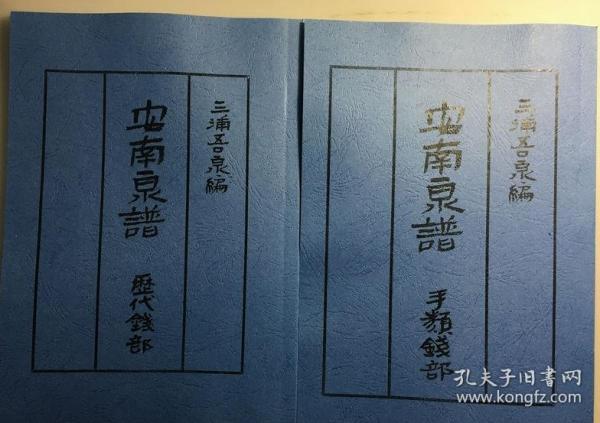 三浦吾泉編
安南泉譜
手類錢部
三浦吾泉編
安南泉譜
歴代錢部
孔夫子旧书网
www.kongfz.com